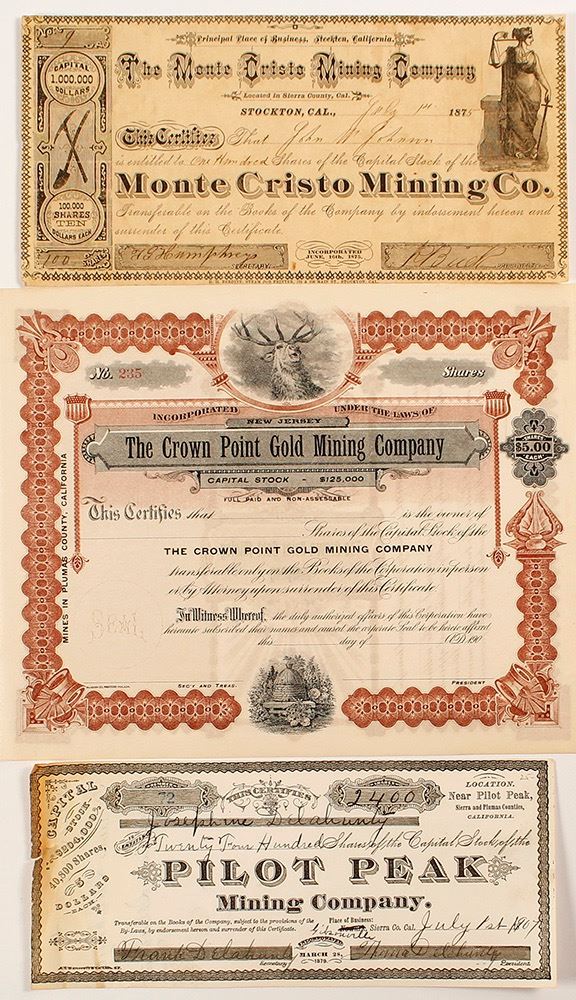 No. 7
Principal Place of Business, Stockton, California.
The Monte Cristo Mining Company
Located in Sierra County, Cal.
CAPITAL
1,000,000
DOLLARS
STOCKTON, CAL., July 1st 1875
This Certifies That John W Johnson
is entitled to One Hundred Shares of the Capital Stock of the
Monte Cristo Mining Co.
100,000
SHARES
TEN
DOLLARS EACH
Transferable on the Books of the Company by indorsement hereon and
surrender of this Certificate.
100 SHARES
Humphreys
SECRETARY
INCORPORATED
JUNE, 16th, 1875.
No. 235
Shares
INCORPORATED UNDER THE LAWS OF
NEW JERSEY
The Crown Point Gold Mining Company
CAPITAL STOCK - $125,000
FULL PAID AND NON-ASSESSABLE
SHARES
$5.00
EACH
MINES IN PLUMAS COUNTY, CALIFORNIA
This Certifies that is the owner of
Shares of the Capital Stock of the
THE CROWN POINT GOLD MINING COMPANY
transferable only on the Books of the Corporation in person
or by Attorney upon surrender of this Certificate.
In Witness Whereof, the duly authorized officers of this Corporation have
hereunto subscribed their names and caused the corporate Seal to be hereto affixed
this day of A.D. 190
SEC'Y AND TREAS.
PRESIDENT
72
THIS CERTIFIES
2400
LOCATION.
Near Pilot Peak,
Sierra and Plumas Counties,
CALIFORNIA.
CAPITAL
STOCK
40,800 Shares,
5
DOLLARS
EACH
Josephine Delahunty
Twenty Four Hundred Shares of the Capital Stock of the
PILOT PEAK
Mining Company.
Transferable on the Books of the Company, subject to the provisions of the
By-Laws, by endorsement hereon and surrender of this Certificate.
Place of Business:
Gibsonville Sierra Co. Cal. July 1st 1907
Frank Delahunty
Secretary
INCORPORATED
MARCH 28,
1879.
Delahunty
President